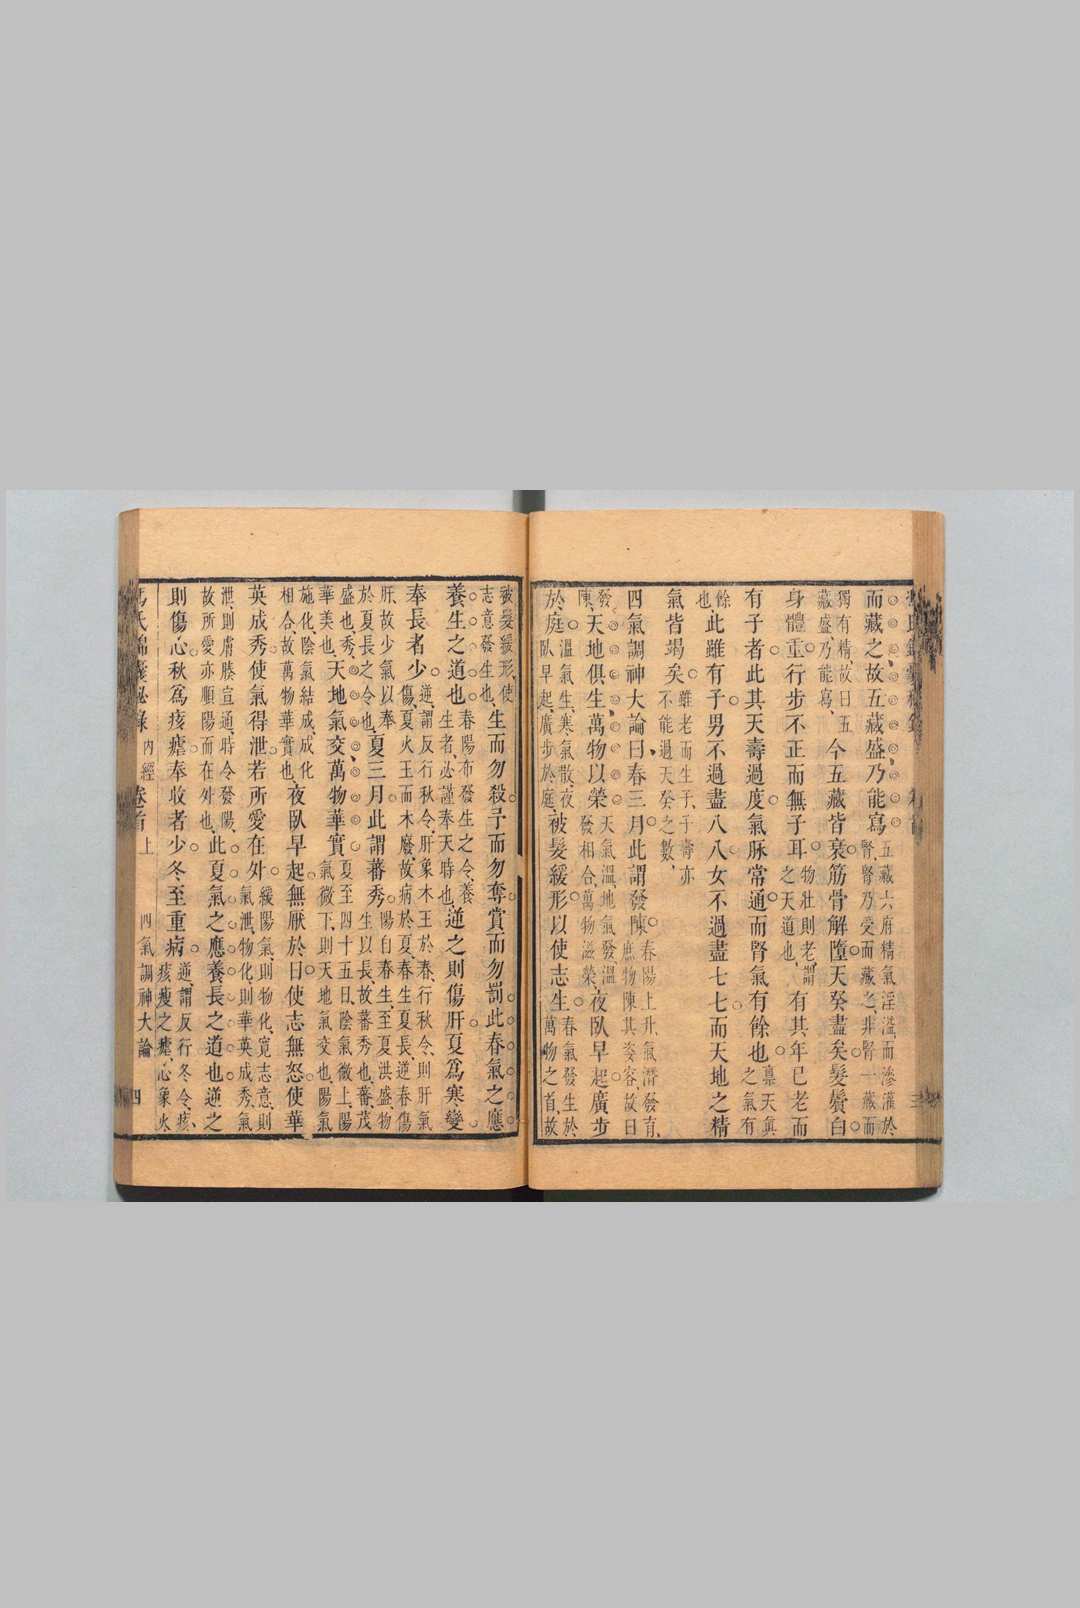 而藏之故五藏盛乃能寫五藏六府精氣淫溢而滲灌於腎腎乃受而藏之非腎一藏而
獨有精故曰五藏盛乃能寫今五藏皆衰筋骨解墮天癸盡矣髮鬢白
身體重行步不正而無子耳物壯則老謂之天道也有其年已老而
有子者此其天壽過度氣脉常通而腎氣有餘也稟天眞之氣有
餘也此雖有子男不過盡八八女不過盡七七而天地之精
氣皆竭矣雖老而生子子壽亦不能過天癸之數
四氣調神大論曰春三月此謂發陳春陽上升氣潛發育庶物陳其姿容故曰
發陳天地俱生萬物以榮天氣溫地氣發溫發相合萬物滋榮夜臥早起廣步
於庭溫氣生寒氣散夜臥早起廣步於庭被髮緩形以使志生春氣發生於萬物之首故
被髮緩形使志意發生也生而勿殺予而勿奪賞而勿罰此春氣之應
養生之道也春陽布發生之令養生者必謹奉天時也逆之則傷肝夏爲寒變
奉長者少逆謂反行秋令肝象木王於春行秋令則肝氣傷夏火王而木廢故病於夏春生夏長逆春傷
肝故少氣以奉於夏長之令也夏三月此謂蕃秀陽自春生至夏洪盛物生以長故蕃秀也蕃茂
盛也秀華美也天地氣交萬物華實夏至四十五日陰氣微上陽氣微下則天地氣交也陽氣
施化陰氣結成成化相合故萬物華實也夜臥早起無厭於日使志無怒使華
英成秀使氣得泄若所愛在外緩陽氣則物化寬志意則氣泄物化則華英成秀氣
泄則膚腠宣通時令發陽故所愛亦順陽而在外也此夏氣之應養長之道也逆之
則傷心秋爲痎瘧奉收者少冬至重病逆謂反行冬令痎痎瘦之瘧心象火
馮氏錦囊秘錄 內經卷首上 四氣調神大論 四